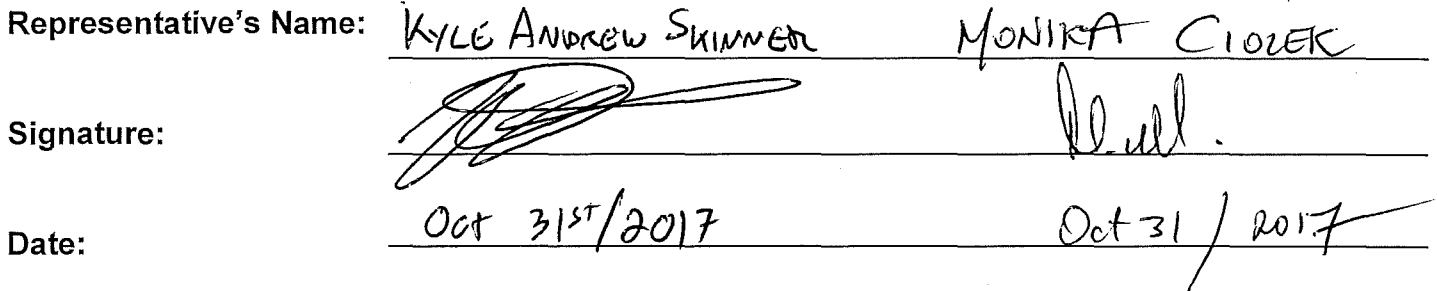 Representative's Name: KYLE ANDREW SKINNER MONIKA CIOZEK
Signature:
Date: Oct 31ST/2017 Oct 31 / 2017